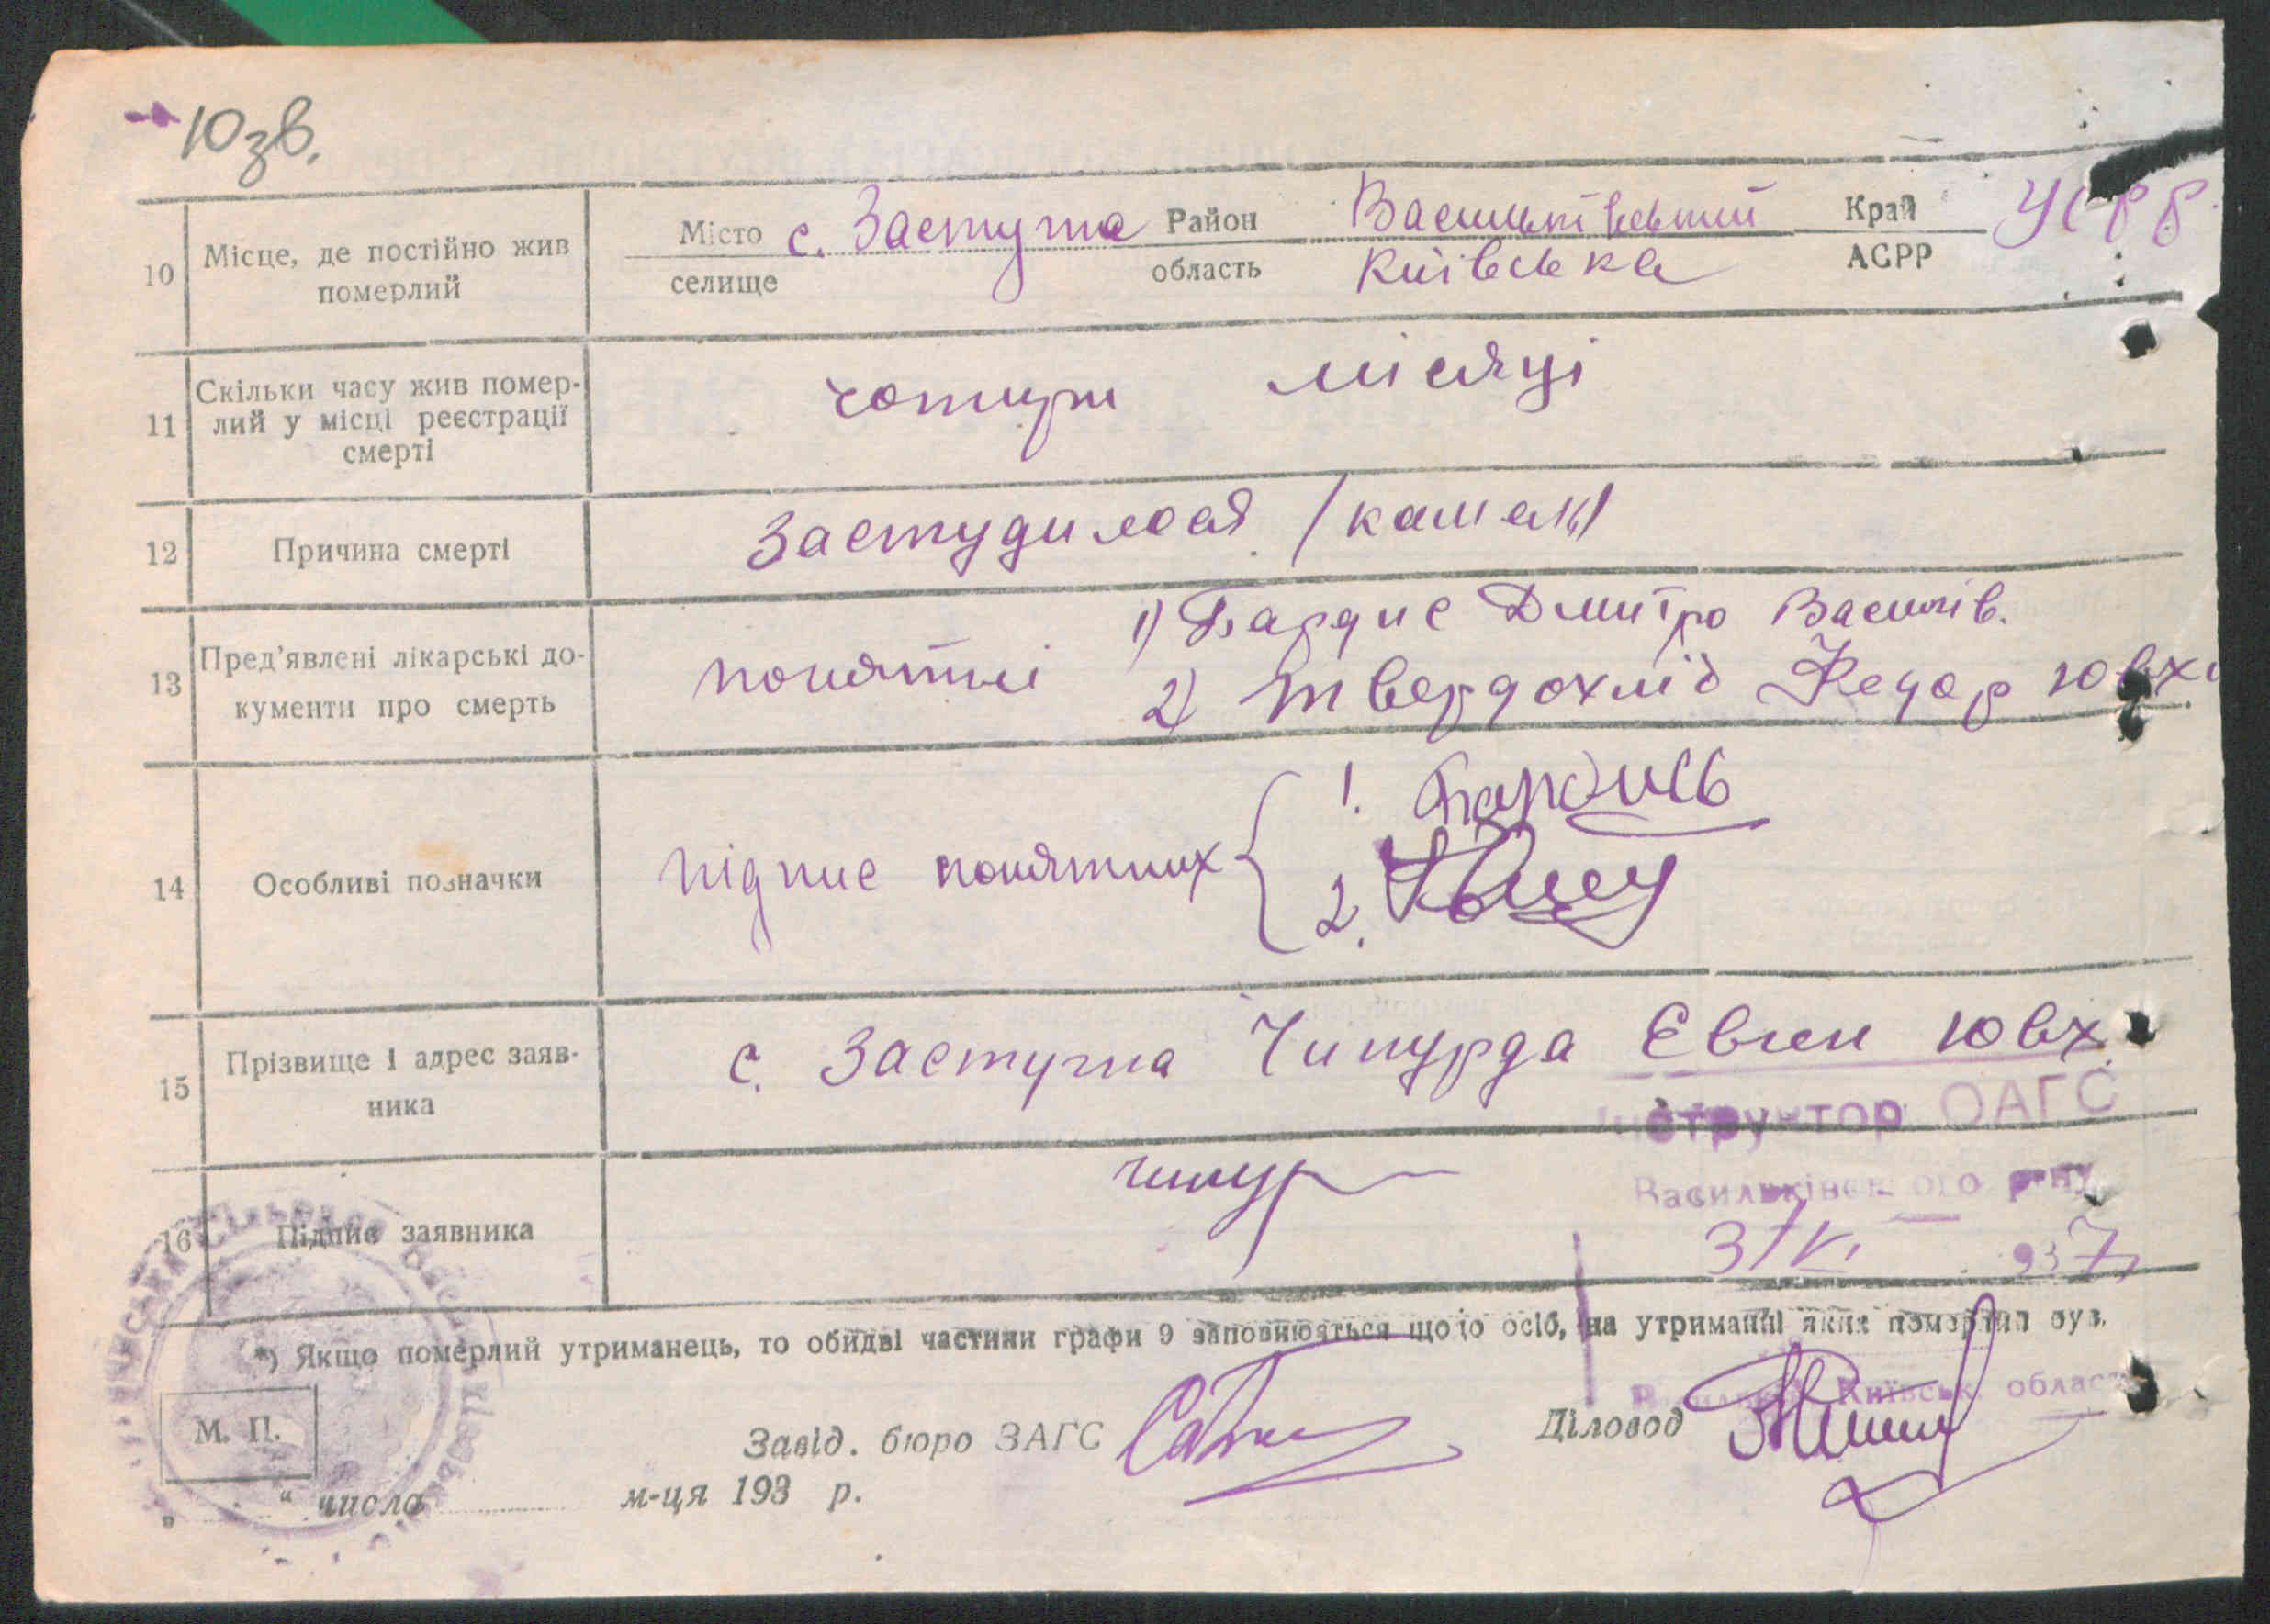 10зв.
10 Місце, де постійно жив померлий
Місто с. Застугна Район Васильківський Край УСРР
селище область Київська АСРР
11 Скільки часу жив помер-
лий у місці реєстрації
смерті
чотири місяці
12 Причина смерті Застудилося /кашель/
13 Пред'явлені лікарські до-
кументи про смерть
понятні 1) Бардис Дмитро Василів.
2) Твердохліб Федор Ювх
14 Особливі позначки підпис понятних
1. Бардись
2.
15 Прізвище і адрес заяв-
ника
с. Застугна Чипурда Євген Ювх.
Інструктор ОАГС
Васильківського р-ну
16 Підпис заявника чипур
3/VI 937
*) Якщо померлий утриманець, то обидві частини графи 9 заповнюються щодо осіб, на утриманні яких померлий був.
Київськ області
М. П.
Завід. бюро ЗАГС Діловод
„ “ числа м-ця 193 р.